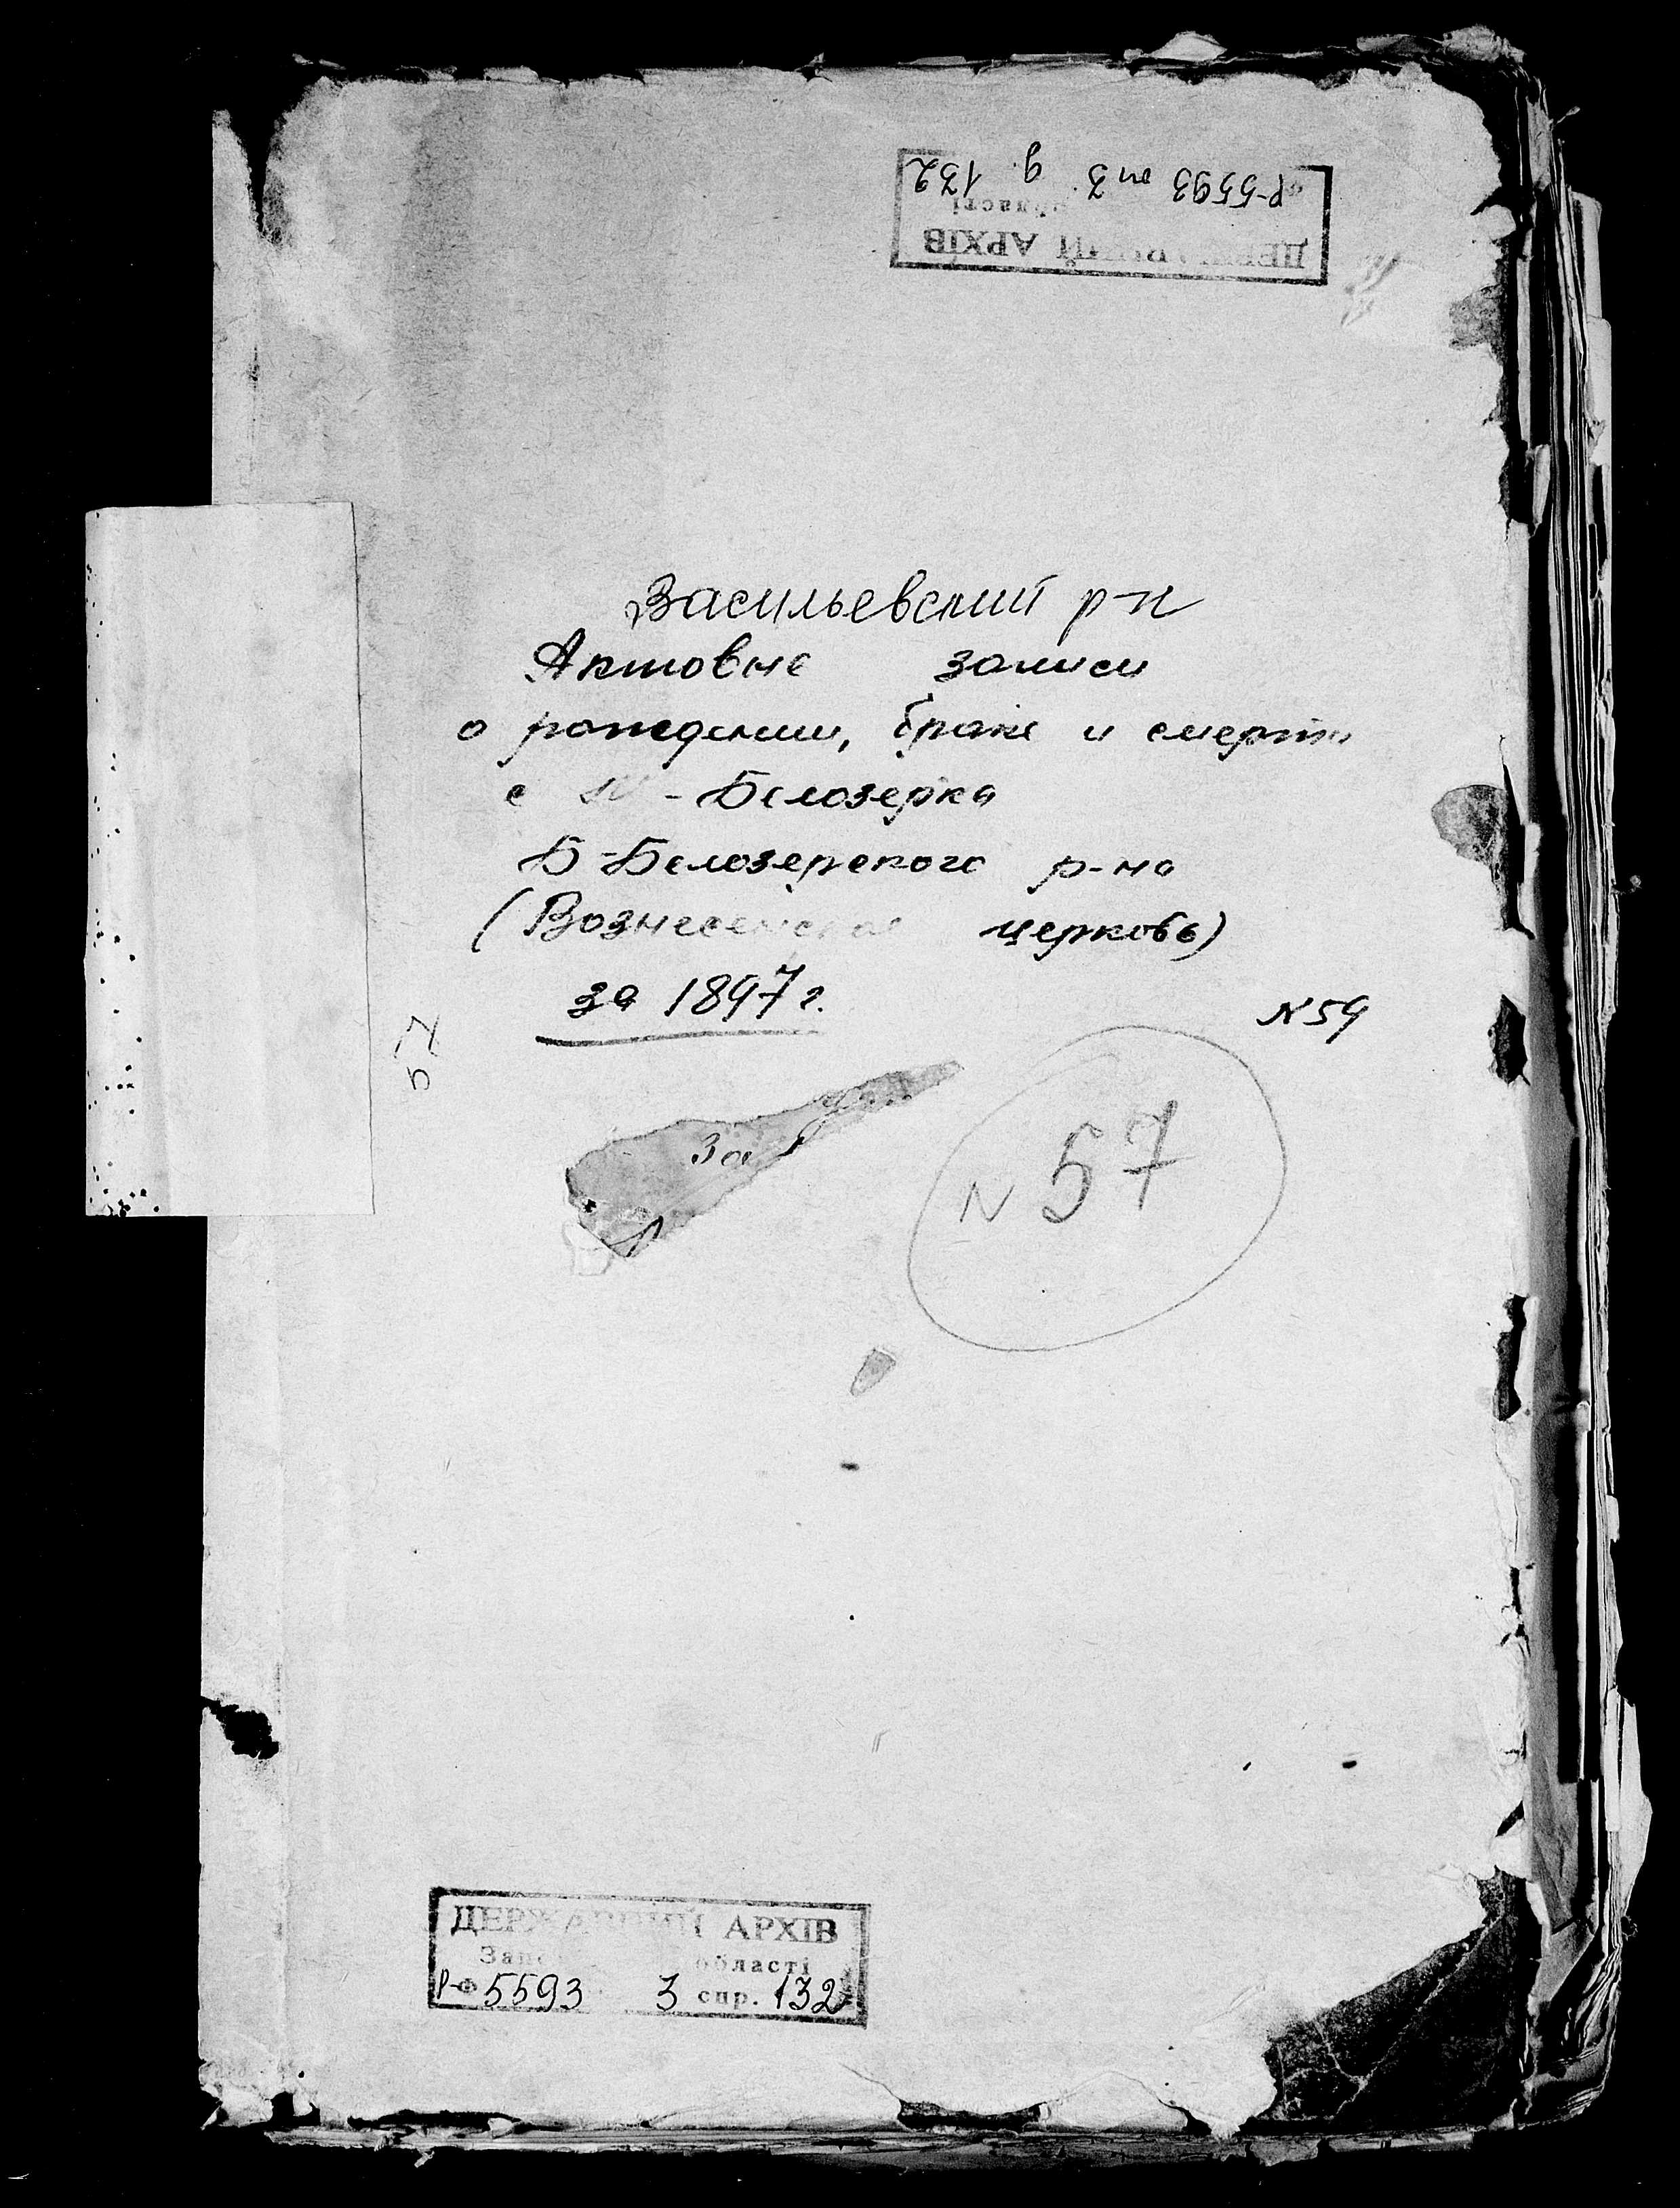 Р-5593 оп 3. д. 132
області
ДЕРЖАВНИЙ АРХІВ
Васильевский р-н
Актовые записи
о рождении, браке и смерти
с - Белозерка
Б-Белозерского р-на
(Вознесенская церковь)
за 1897 г.
N 59
57
За
N 57
ДЕРЖАВНИЙ АРХІВ
області
Р-Ф 5593 3 спр. 132